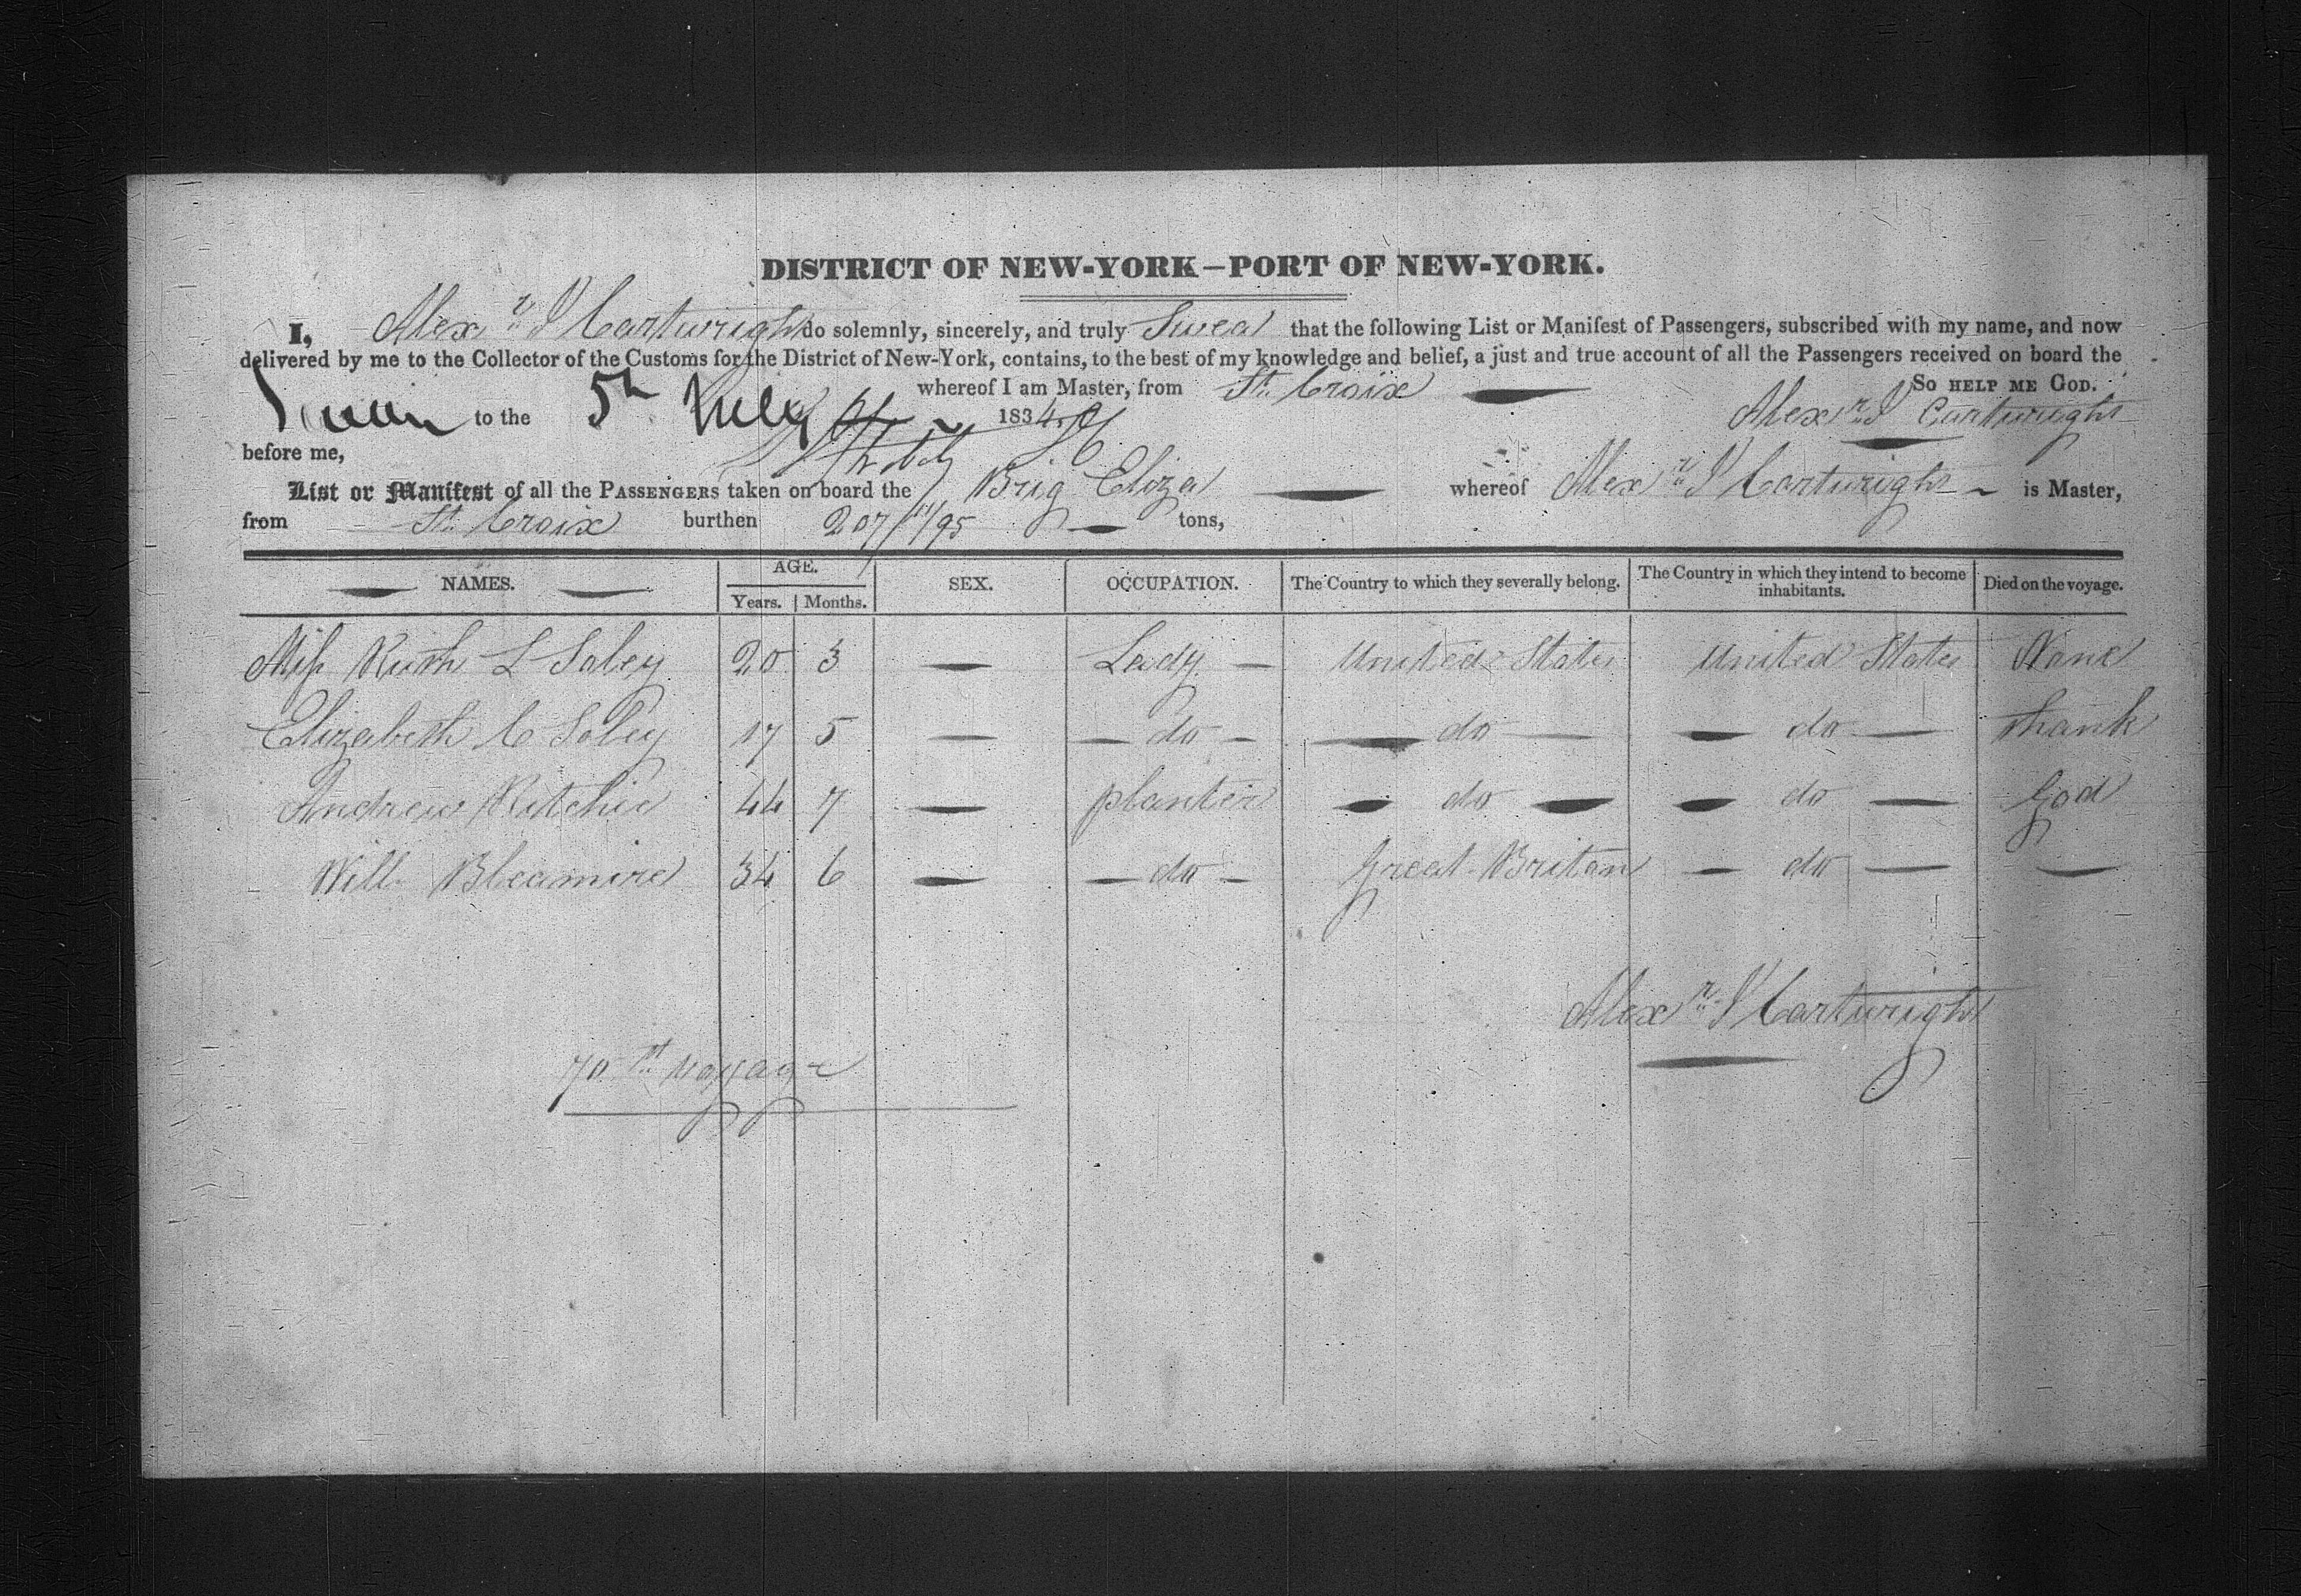 DISTRICT OF NEW-YORK—PORT OF NEW-YORK.
I, Alexr J Cartwright do solemnly, sincerely, and truly Swear that the following List or Manifest of Passengers, subscribed with my name, and now
delivered by me to the Collector of the Customs for the District of New-York, contains, to the best of my knowledge and belief, a just and true account of all the Passengers received on board the
whereof I am Master, from St. Croix So HELP ME GOD.
Sworn to the 5th July 1834 Alexr J Cartwright
before me,
List or Manifest of all the PASSENGERS taken on board the Brig Eliza whereof Alexr J Cartwright is Master,
from St. Croix burthen 207 /95 tons,
NAMES. AGE. Years. Months. SEX. OCCUPATION. The Country to which they severally belong. The Country in which they intend to become inhabitants. Died on the voyage.
Miss Ruth L Soley 20 3 — Lady — United States United States None
Elizabeth C Soley 17 5 — — do — — do — — do — thank
Andrew Ritchie 44 7 — planter — do — — do — God
Will Bleamire 34 6 — — do — Great Britan — do — —
Alexr J Cartwright
70th voyage